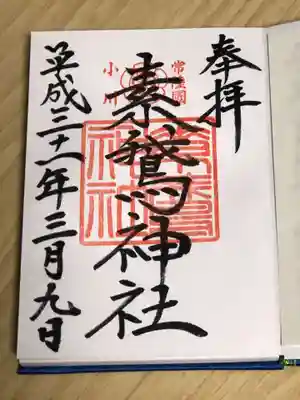 奉拝
常陸國
小川
素鵞神社
素鵞神社
平成三十一年三月九日